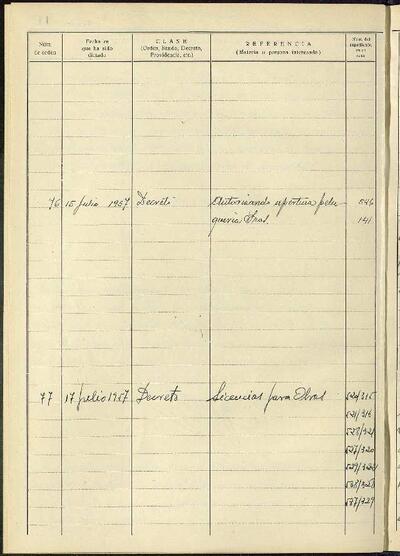 Núm. de orden
Fecha en que ha sido dictado
CLASE (Orden, Bando, Decreto, Providencia, etc.)
REFERENCIA (Materia o persona interesada)
Núm. del expediente
76 15 julio 1957 Decreto Autorizando apertura pelu- 546
quería Sras. 141
77 17 julio 1957 Decreto Licencias para Obras 520/315
521/316
528/321
527/320
529/322
537/329